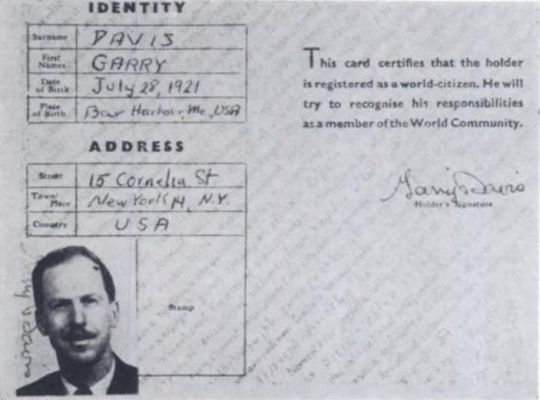 IDENTITY
Surname DAVIS
First Names GARRY
Date of Birth July 28, 1921
Place of Birth Bar Harbour, Me, USA
ADDRESS
Street 15 Cornelia St
Town/Place New York 14, N.Y.
Country USA
Stamp
This card certifies that the holder
is registered as a world-citizen. He will
try to recognise his responsibilities
as a member of the World Community.
Garry Davis
Holder's Signature